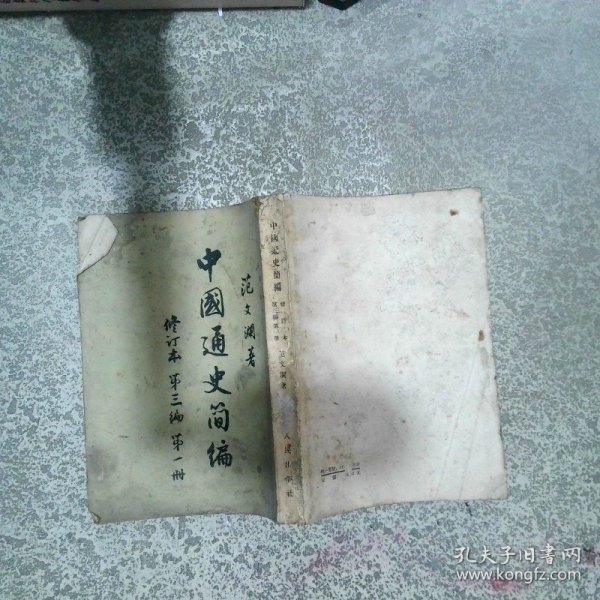 范文瀾著
中國通史简编
修订本 第三编 第一册
中國通史簡編
修訂本
第三編第一冊
范文瀾著
人民出版社
孔夫子旧书网
www.kongfz.com